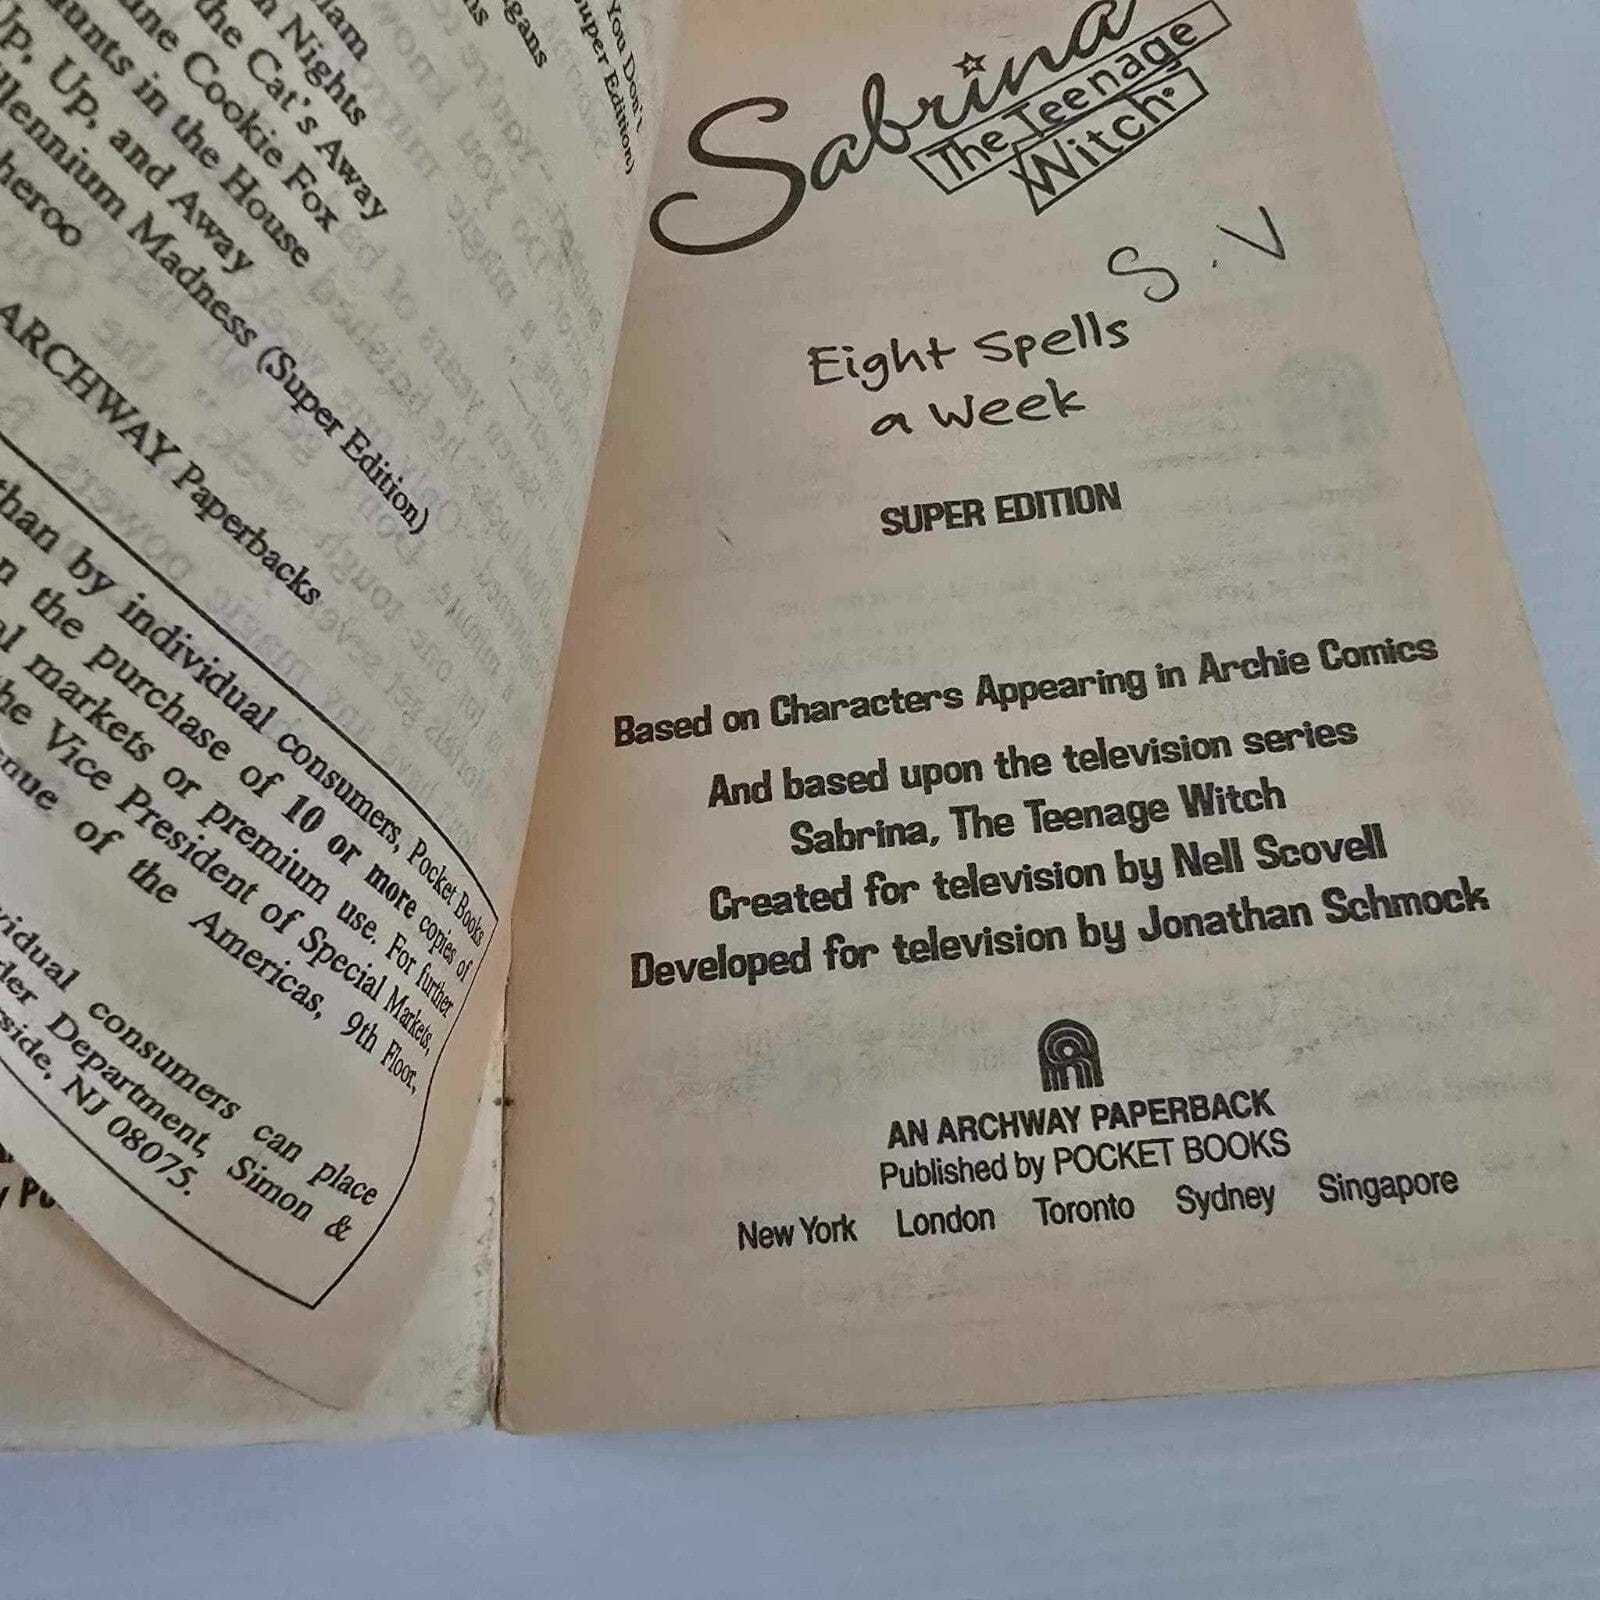 You Don't
(Super Edition)
Nights
the Cat's Away
Cookie Fox
in the House
Up, Up, and Away
Madness (Super Edition)
ARCHWAY Paperbacks
than by individual consumers, Pocket Books
the purchase of 10 or more copies of
markets or premium use. For further
Vice President of Special Markets,
of the Americas, 9th Floor,
consumers can place
Department, Simon &
NJ 08075.
Sabrina
The Teenage
Witch®
S.V
Eight Spells
a Week
SUPER EDITION
Based on Characters Appearing in Archie Comics
And based upon the television series
Sabrina, The Teenage Witch
Created for television by Nell Scovell
Developed for television by Jonathan Schmock
AN ARCHWAY PAPERBACK
Published by POCKET BOOKS
New York London Toronto Sydney Singapore